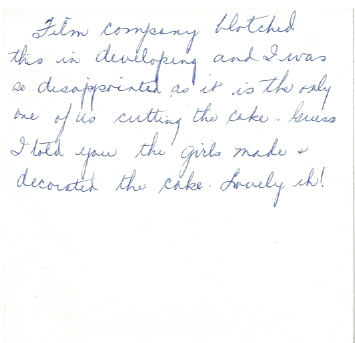 Film company blotched
this in developing and I was
so disappointed as it is the only
one of us cutting the cake. Guess
I told you the girls made &
decorated the cake. Lovely eh!